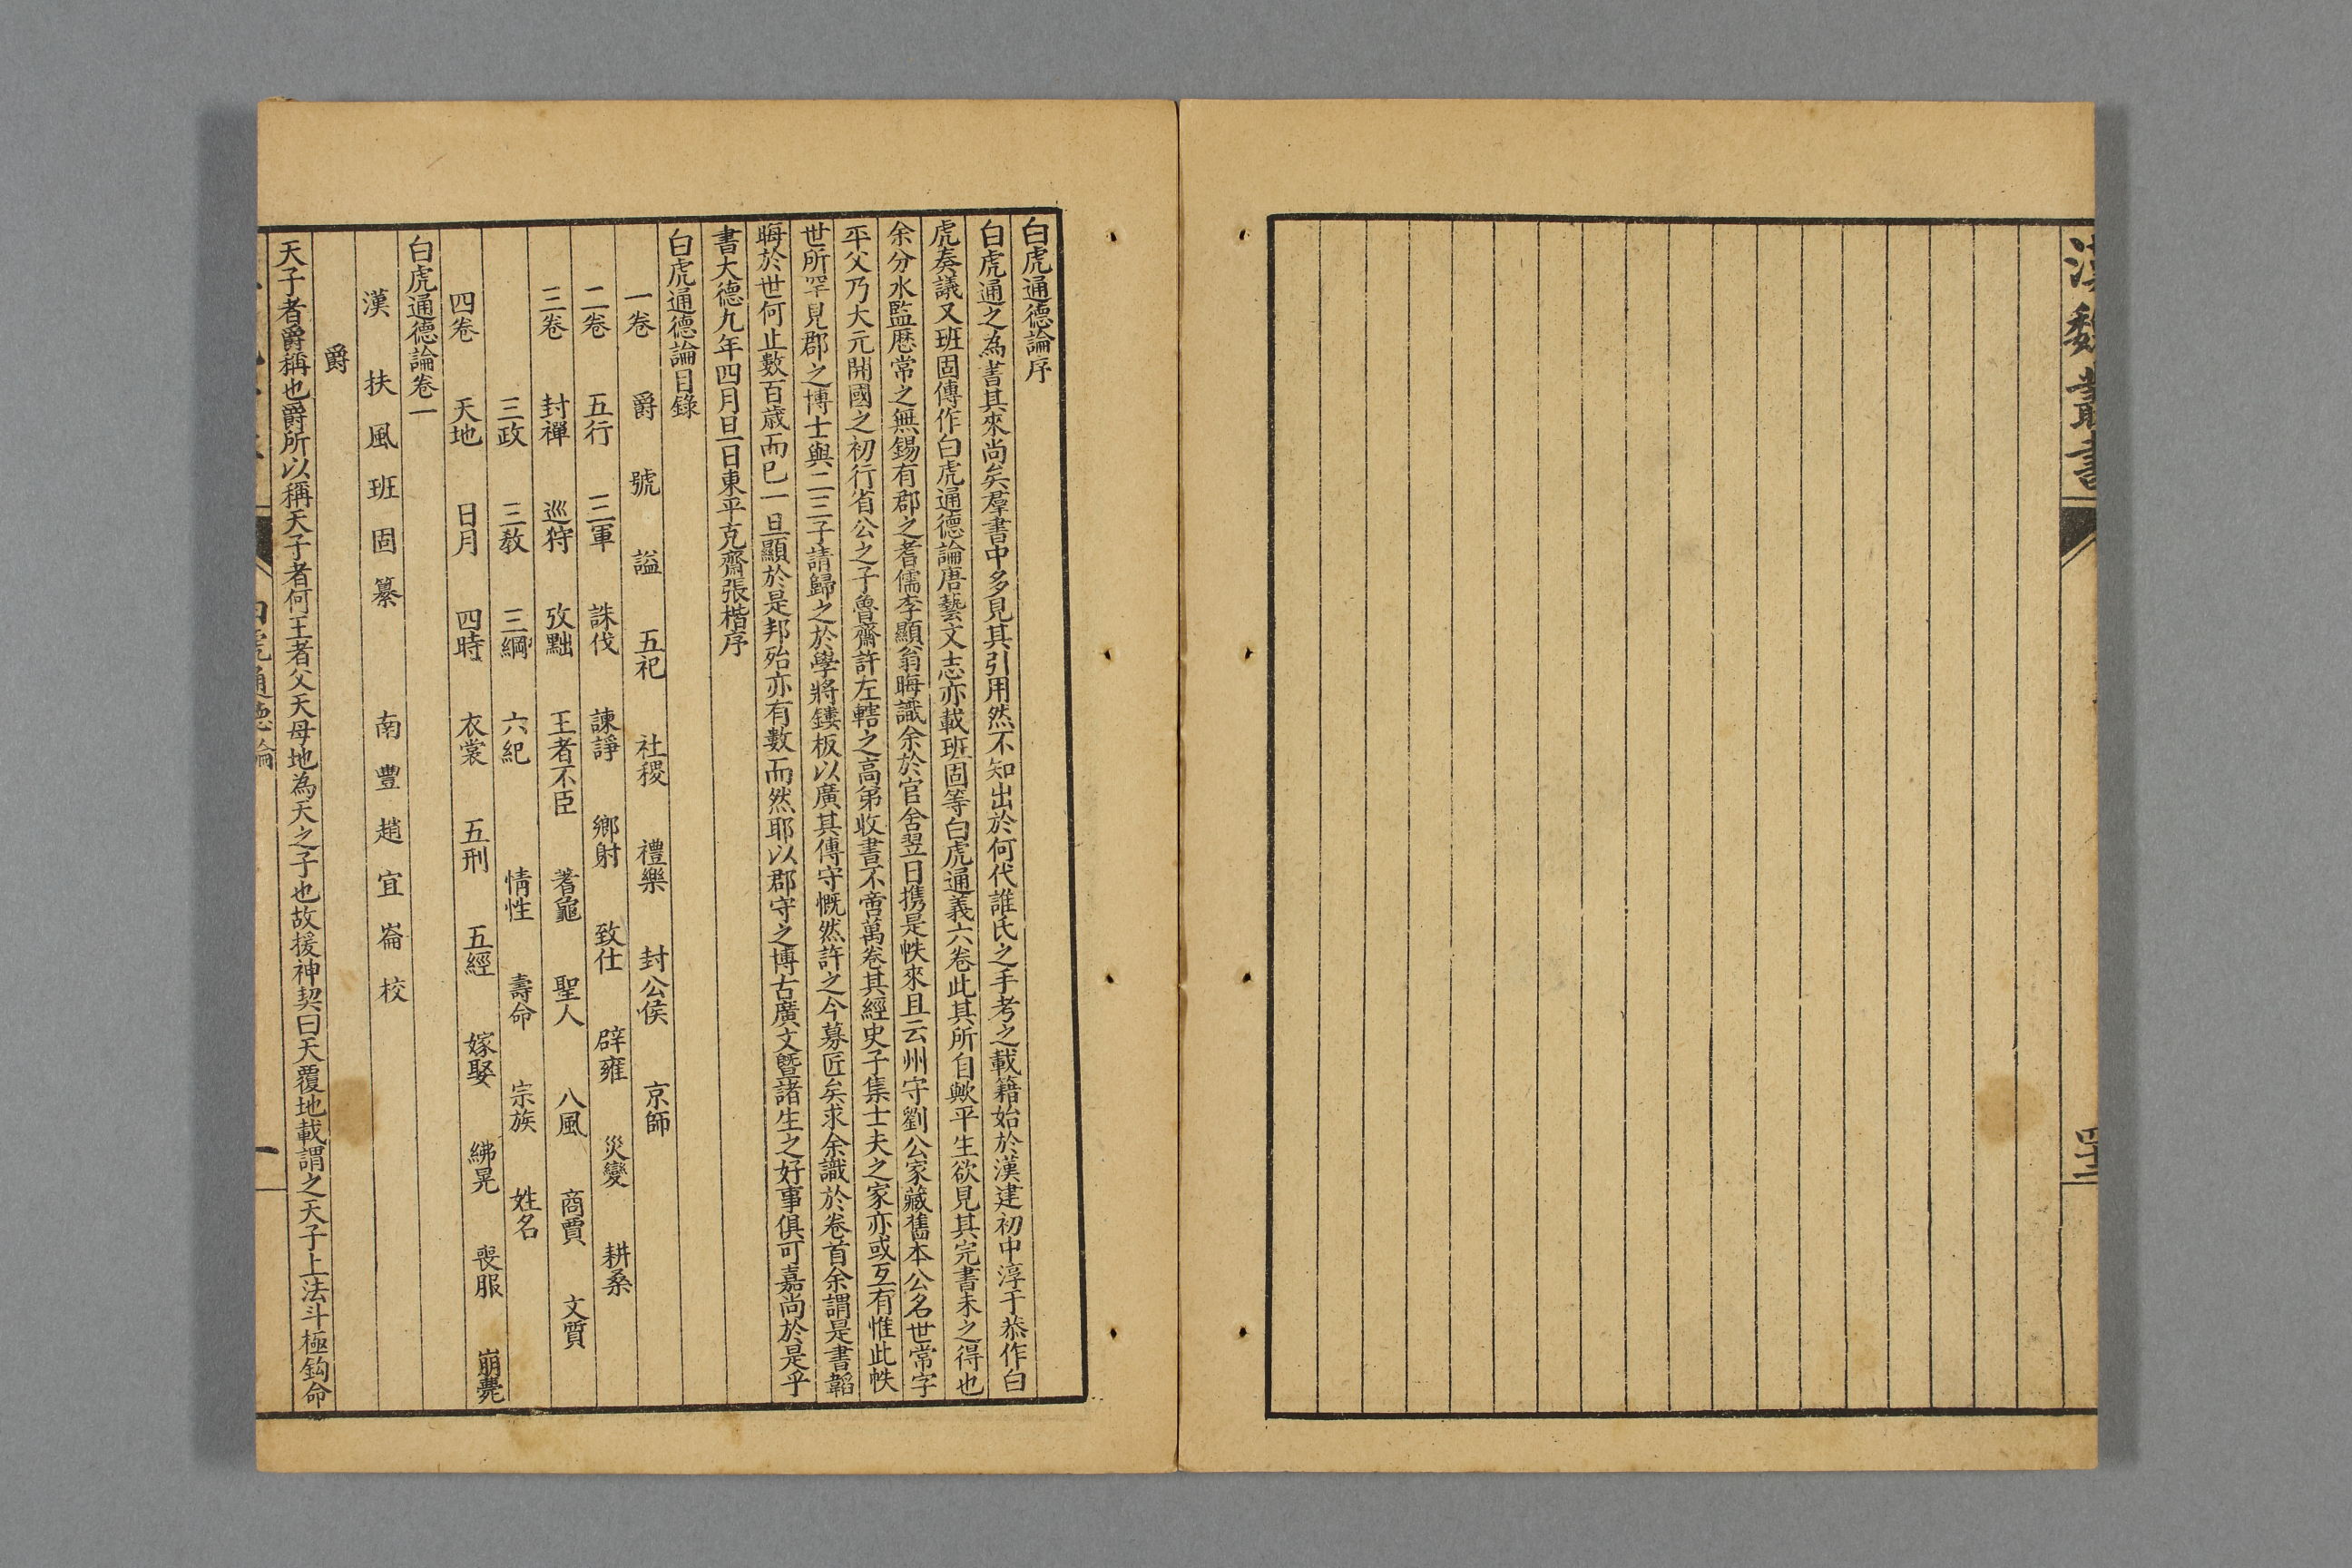 漢魏叢書
白虎通德論序
白虎通之為書其來尚矣羣書中多見其引用然不知出於何代誰氏之手考之載籍始於漢建初中淳于恭作白
虎奏議又班固傳作白虎通德論唐藝文志亦載班固等白虎通義六卷此其所自歟平生欲見其完書未之得也
余分水監歷常之無錫有郡之耆儒李顯翁晦識余於官舍翌日携是帙來且云州守劉公家藏舊本公名世常字
平父乃大元開國之初行省公之子魯齋許左轄之高弟收書不啻萬卷其經史子集士夫之家亦或互有惟此帙
世所罕見郡之博士與二三子請歸之於學將鏤板以廣其傳守慨然許之今募匠矣求余識於卷首余謂是書韜
晦於世何止數百歲而已一旦顯於是邦殆亦有數而然耶以郡守之博古廣文暨諸生之好事俱可嘉尚於是乎
書大德九年四月旦日東平克齋張楷序
白虎通德論目錄
一卷 爵 號 謚 五祀 社稷 禮樂 封公侯 京師
二卷 五行 三軍 誅伐 諫諍 鄉射 致仕 辟雍 災變 耕桑
三卷 封禪 巡狩 攷黜 王者不臣 蓍龜 聖人 八風 商賈 文質
三政 三教 三綱 六紀 情性 壽命 宗族 姓名
四卷 天地 日月 四時 衣裳 五刑 五經 嫁娶 紼冕 喪服 崩薨
白虎通德論卷一
漢 扶風班固纂 南豐趙宜崙校
爵
天子者爵稱也爵所以稱天子者何王者父天母地為天之子也故援神契曰天覆地載謂之天子上法斗極鈎命
白虎通德論 一